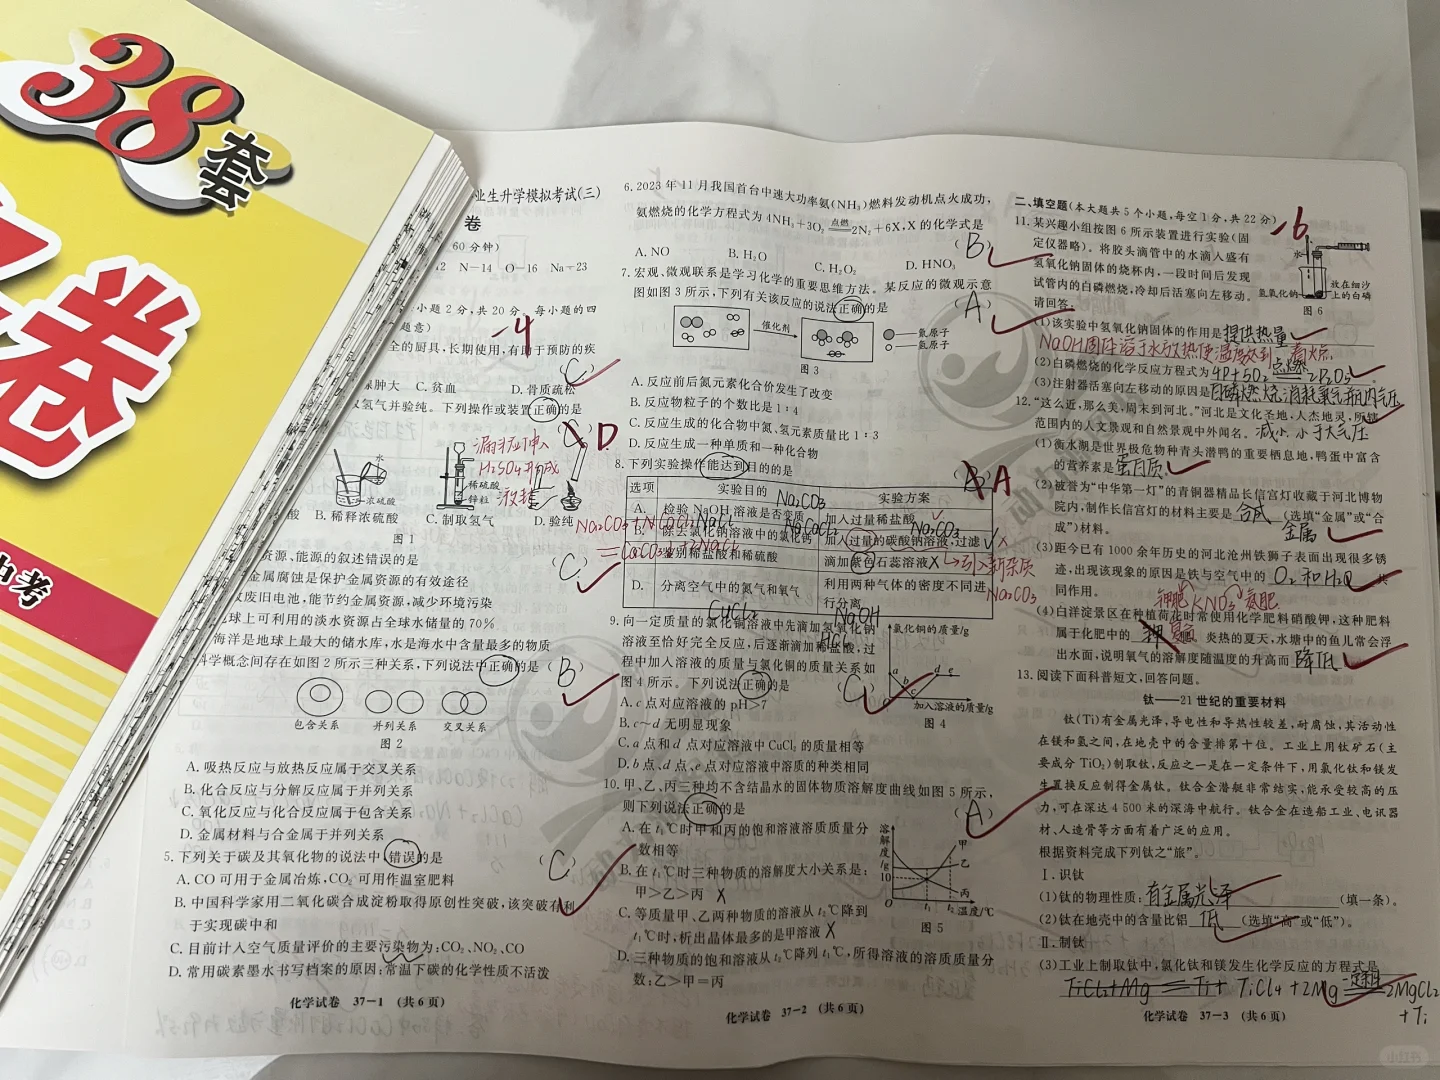 38
套
卷
中考
业生升学模拟考试(三)
卷
60分钟)
12 N—14 O—16 Na—23
小题2分,共20分。每小题的四
题意)
-4
全的厨具,长期使用,有助于预防的疾
(C)
尿肿大 C.贫血 D.骨质疏松
氢气并验纯。下列操作或装置正确的是
D
漏斗应伸入
H₂SO₄形成
液封
水
浓硫酸
稀硫酸
锌粒
酸 B.稀释浓硫酸 C.制取氢气 D.验纯
图1
资源、能源的叙述错误的是
(C)
金属腐蚀是保护金属资源的有效途径
废旧电池,能节约金属资源,减少环境污染
球上可利用的淡水资源占全球水储量的70%
海洋是地球上最大的储水库,水是海水中含量最多的物质
科学概念间存在如图2所示三种关系,下列说法中正确的是 (B)
包含关系 并列关系 交叉关系
图2
A.吸热反应与放热反应属于交叉关系
B.化合反应与分解反应属于并列关系
C.氧化反应与化合反应属于包含关系
D.金属材料与合金属于并列关系
5.下列关于碳及其氧化物的说法中,错误的是 (C)
A.CO可用于金属冶炼,CO₂可用作温室肥料
B.中国科学家用二氧化碳合成淀粉取得原创性突破,该突破有利
于实现碳中和
C.目前计入空气质量评价的主要污染物为:CO₂、NO₂、CO
D.常用碳素墨水书写档案的原因:常温下碳的化学性质不活泼
化学试卷 37—1 (共6页)
6.2023年11月我国首台中速大功率氨(NH₃)燃料发动机点火成功,
氨燃烧的化学方程式为4NH₃+3O₂ 点燃 2N₂+6X,X的化学式是
(B)
A.NO B.H₂O C.H₂O₂ D.HNO₃
7.宏观、微观联系是学习化学的重要思维方法。某反应的微观示意
图如图3所示,下列有关该反应的说法正确的是 (A)
催化剂
氮原子
氢原子
图3
A.反应前后氮元素化合价发生了改变
B.反应物粒子的个数比是1:4
C.反应生成的化合物中氮、氢元素质量比1:3
D.反应生成一种单质和一种化合物
8.下列实验操作能达到目的的是 A
选项 实验目的 实验方案
Na₂CO₃
A. 检验NaOH溶液是否变质 加入过量稀盐酸
NaCl CaCl₂ Na₂CO₃
B. 除去氯化钠溶液中的氯化钙 加入过量的碳酸钠溶液,过滤
C. 鉴别稀盐酸和稀硫酸 滴加紫色石蕊溶液
引入新杂质
Na₂CO₃
D. 分离空气中的氮气和氧气 利用两种气体的密度不同进
行分离
CuCl₂ NaOH
9.向一定质量的氯化铜溶液中先滴加氢氧化钠
溶液至恰好完全反应,后逐渐滴加稀盐酸,过
HCl
程中加入溶液的质量与氯化铜的质量关系如
图4所示。下列说法正确的是 (C)
氯化铜的质量/g
a
b
c
d e
加入溶液的质量/g
图4
A.c点对应溶液的pH>7
B.c~d无明显现象
C.a点和d点对应溶液中CuCl₂的质量相等
D.b点、d点、e点对应溶液中溶质的种类相同
10.甲、乙、丙三种均不含结晶水的固体物质溶解度曲线如图5所示,
则下列说法正确的是 (A)
A.在t₁℃时甲和丙的饱和溶液溶质质量分
数相等
B.在t₁℃时三种物质的溶解度大小关系是:
甲>乙>丙
C.等质量甲、乙两种物质的溶液从t₂℃降到
t₁℃时,析出晶体最多的是甲溶液
D.三种物质的饱和溶液从t₂℃降到t₁℃,所得溶液的溶质质量分
数:乙>甲=丙
溶解度/g
10
0
甲
乙
丙
t₁ t₂ 温度/℃
图5
化学试卷 37—2 (共6页)
二、填空题(本大题共5个小题,每空1分,共22分)
-6
11.某兴趣小组按图6所示装置进行实验(固
定仪器略)。将胶头滴管中的水滴入盛有
氢氧化钠固体的烧杯内,一段时间后发现
试管内的白磷燃烧,冷却后活塞向左移动。
请回答:
水
氢氧化钠
放在细沙
上的白磷
图6
(1)该实验中氢氧化钠固体的作用是提供热量
NaOH固体溶于水放热使温度达到着火点
(2)白磷燃烧的化学反应方程式为4P+5O₂ 点燃 2P₂O₅。
(3)注射器活塞向左移动的原因是白磷燃烧消耗氧气,瓶内气压
减小,小于大气压
12.“这么近,那么美,周末到河北。”河北是文化圣地,人杰地灵,所辖
范围内的人文景观和自然景观中外闻名。
(1)衡水湖是世界极危物种青头潜鸭的重要栖息地,鸭蛋中富含
的营养素是蛋白质
(2)被誉为“中华第一灯”的青铜器精品长信宫灯收藏于河北博物
院内,制作长信宫灯的材料主要是合成(选填“金属”或“合
成”)材料。
金属
(3)距今已有1000余年历史的河北沧州铁狮子表面出现很多锈
迹,出现该现象的原因是铁与空气中的 O₂和H₂O 共
同作用。
钾肥 KNO₃ 氮肥
(4)白洋淀景区在种植荷花时常使用化学肥料硝酸钾,这种肥料
属于化肥中的 复合 肥。炎热的夏天,水塘中的鱼儿常会浮
出水面,说明氧气的溶解度随温度的升高而 降低。
13.阅读下面科普短文,回答问题。
钛——21世纪的重要材料
钛(Ti)有金属光泽,导电性和导热性较差,耐腐蚀,其活动性
在镁和氢之间,在地壳中的含量排第十位。工业上用钛矿石(主
要成分TiO₂)制取钛,反应之一是在一定条件下,用氯化钛和镁发
生置换反应制得金属钛。钛合金潜艇非常结实,能承受较高的压
力,可在深达4 500米的深海中航行。钛合金在造船工业、电讯器
材、人造骨等方面有着广泛的应用。
根据资料完成下列钛之“旅”。
Ⅰ.识钛
(1)钛的物理性质:有金属光泽(填一条)。
(2)钛在地壳中的含量比铝 低(选填“高”或“低”)。
Ⅱ.制钛
(3)工业上制取钛中,氯化钛和镁发生化学反应的方程式是
TiCl₄+2Mg 一定条件 2MgCl₂
+Ti
化学试卷 37—3 (共6页)
小红书